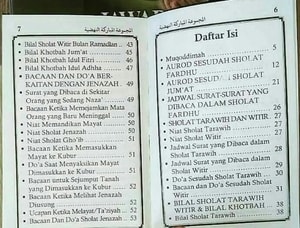 7 المجموعة المباركة النهضية
• Bilal Sholat Witir Bulan Ramadlan 43
• Bilal Khotbah Jum'at 45
• Bilal Khotbah Idul Fitri 45
• Bilal Khotbah Idul Adhha 46
• BACAAN DAN DO'A BER-
KAITAN DENGAN JENAZAH 48
• Surat yang Dibaca di Sekitar
Orang yang Sedang Naza' 49
• Bacaan Ketika Mengamitkan Mata
Orang yang Baru Meninggal 50
• Niat Memandikan Mayat 50
• Niat Sholat Jenazah 50
• Niat Sholat Gho'ib 51
• Bacaan Ketika Memasukkan
Mayat ke Kubur 51
• Do'a Saat Menyaksikan Mayat
Dimasukkan ke Kubur 51
• Bacaan untuk Sejumput Tanah
yang Dimasukkan ke Kubur 52
• Bacaan Ketika Melihat Jenazah
Diusung 52
• Ucapan Ketika Melayat/Ta'ziyah 52
• Bacaan Dan Do'a Sholat Jenazah 53
المجموعة المباركة النهضية 6
Daftar Isi
• Muqoddimah
• AUROD SESUDAH SHOLAT
FARDHU
• AUROD SESUDAH SHOLAT
JUM'AT
• JADWAL SURAT-SURAT YANG
DIBACA DALAM SHOLAT
FARDHU 26
• SHOLAT TARAWIH DAN WITIR
• Niat Sholat Tarawih
• Niat Sholat Witir
• Jadwal Surat yang Dibaca dalam
Sholat Tarawih
• Jadwal Surat yang Dibaca dalam
Sholat Witir
• Do'a Sesudah Sholat Tarawih
• Bacaan dan Do'a Sesudah Sholat
Witir
• BILAL SHOLAT TARAWIH
WITIR & BILAL KHOTBAH 38
• Bilal Sholat Tarawih 38